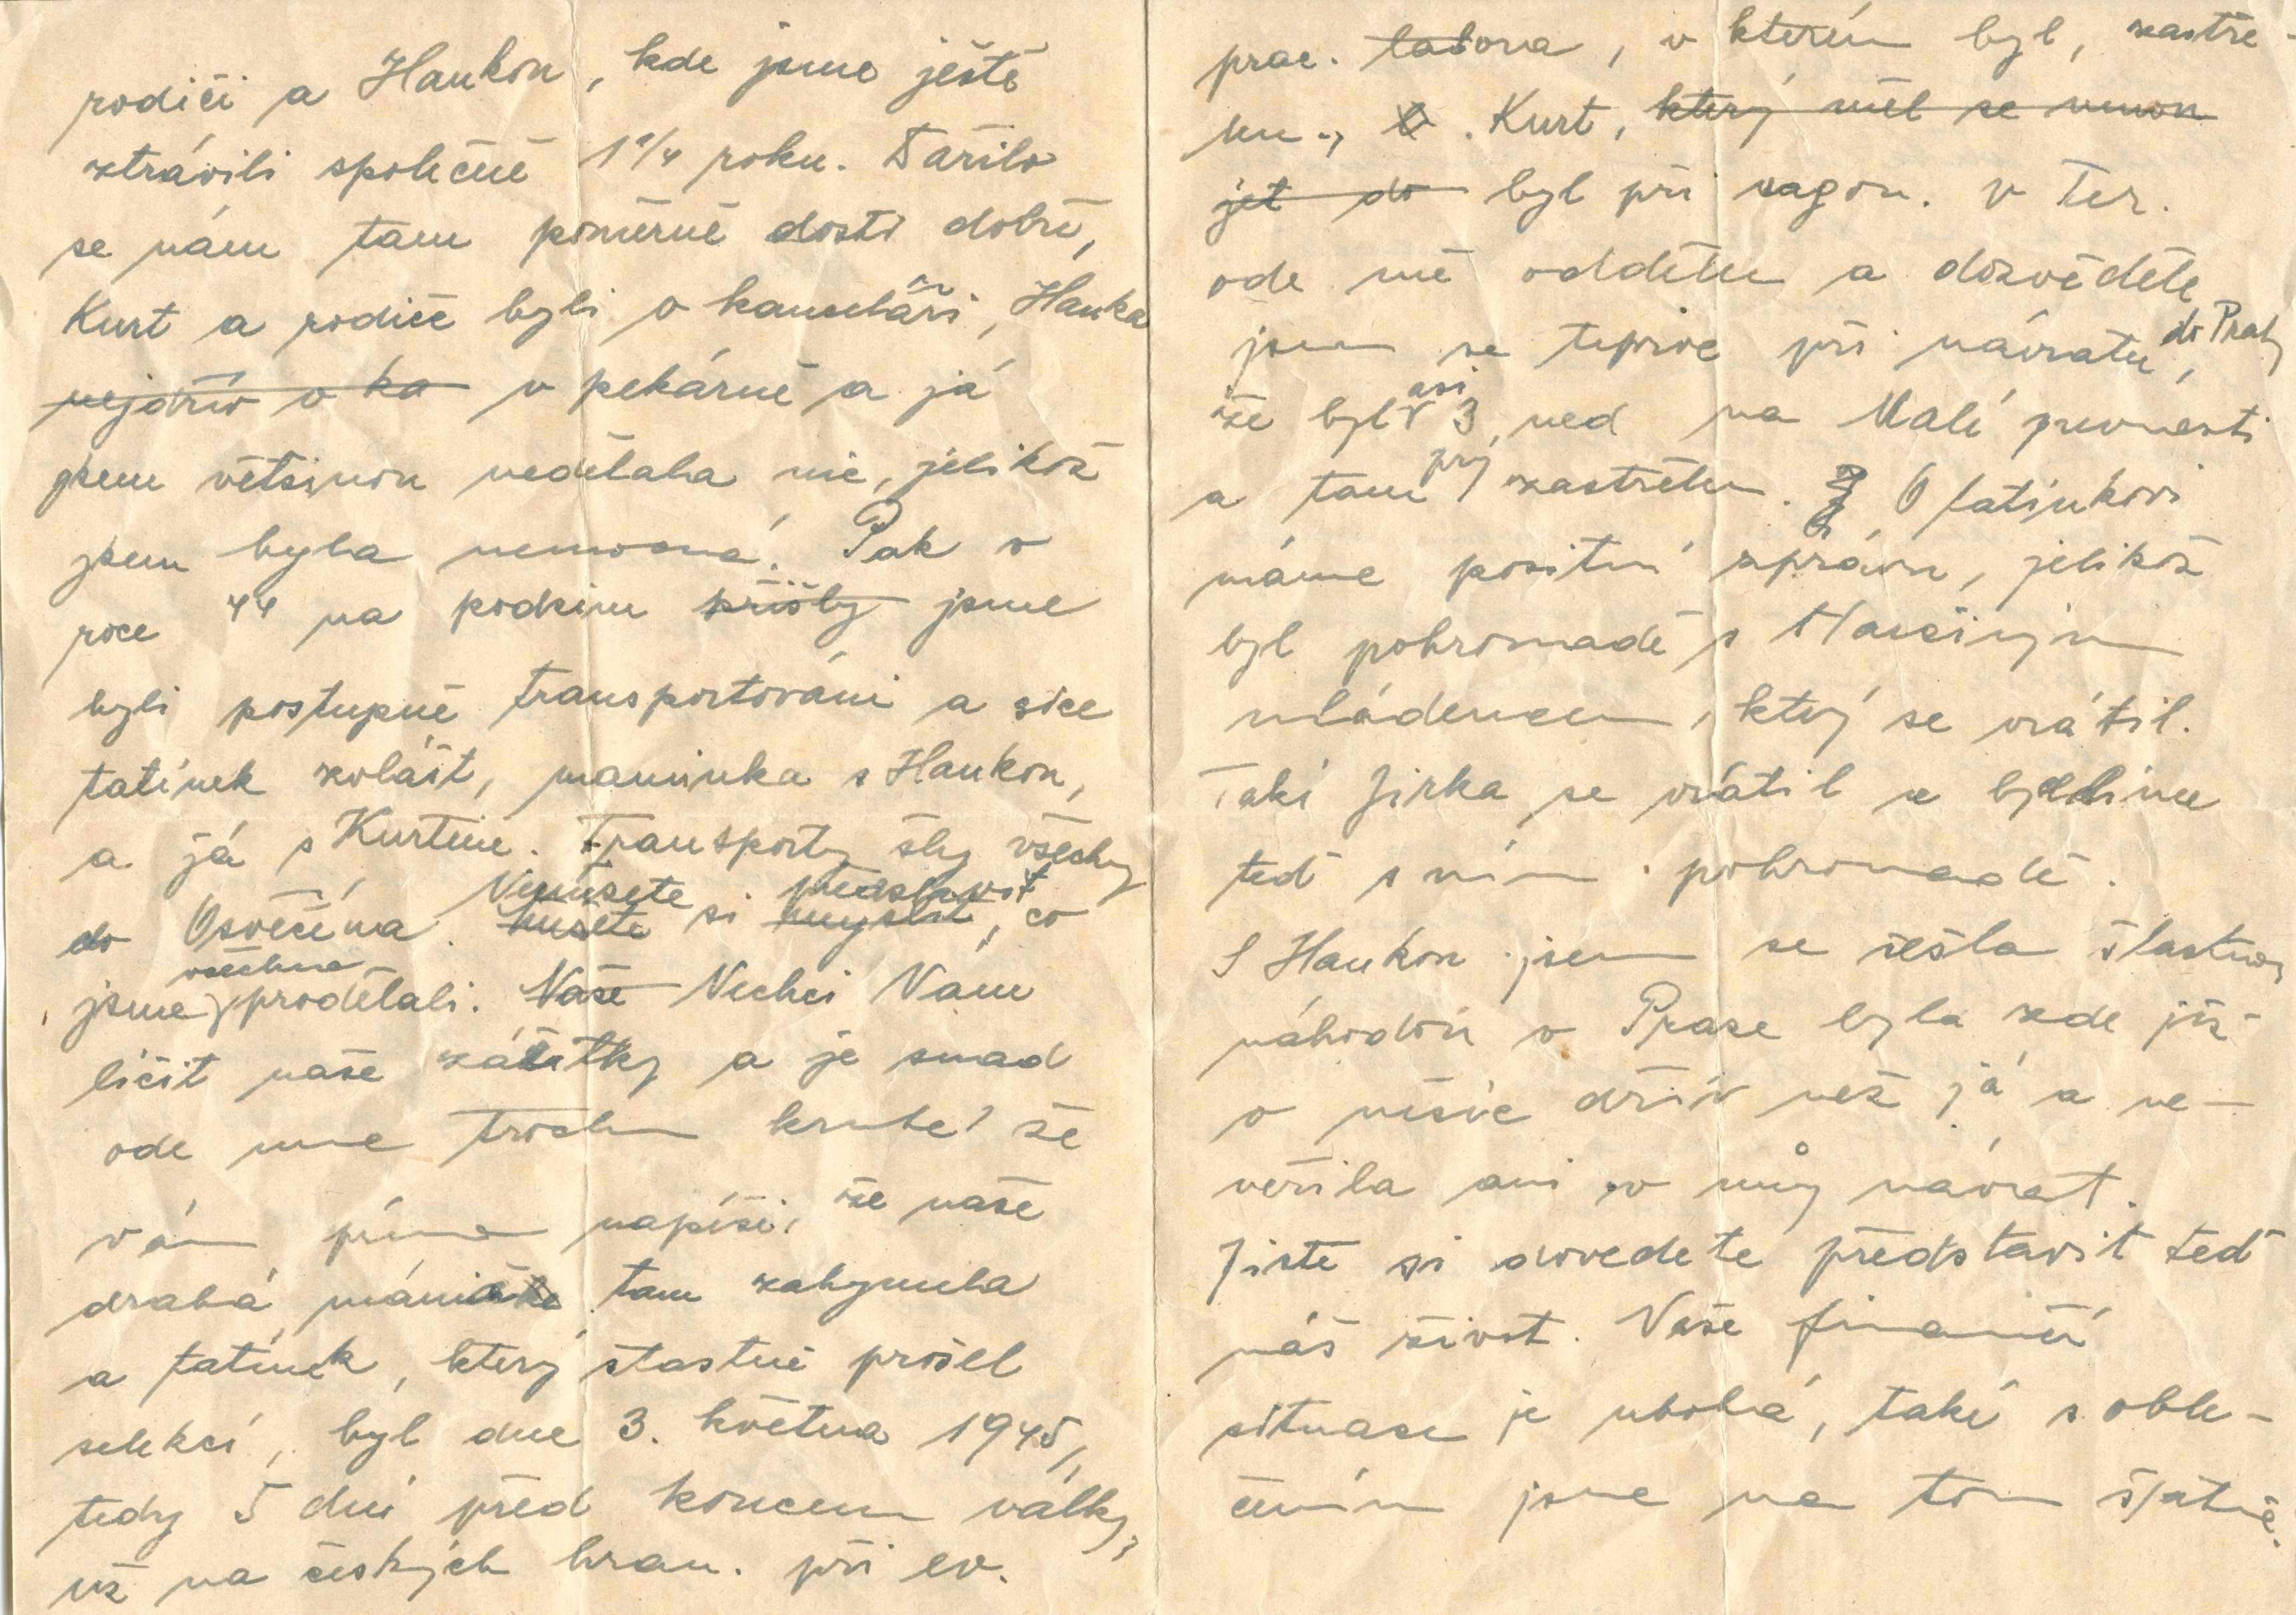 rodiči a Hankou, kde jsme ještě
ztrávili společně 1 3/4 roku. Dařilo
se nám tam poměrně dosti dobře,
Kurt a rodiče byli v kanceláři, Hanka
nejdřív v ka v pekárně a já
jsem většinou nedělala nic, jelikož
jsem byla nemocná. Pak v
roce 44 na podzim přišly jsme
byli postupně transportováni a sice
tatínek zvlášt, maminka s Hankou,
a já s Kurtem. Transporty šly všechny
do Osvěčína. Nemůžete si představit, co
jsme všechno prodělali. Naše Nechci Vám
líčit naše zážitky a je snad
ode mne trochu kruté že
vám přímo napíši, že naše
drahá tam zahynula
a tatínek, který štastně prošel
selekcí, byl dne 3. května 1945,
tedy 5 dní před koncem války,
už na českých hran. při ev.
prac. tabora, v kterém byl, zastře-
len., . Kurt, který měl se mnou
jet do byl při vagon. v Ter.
ode mě oddělen a dozvěděle
jsem se teprve při návratu do Prahy,
že byl asi 3 ned na Malé pevnosti
a tam prý zastřelen. O tatínkovi
máme positiví zprávu, jelikož
byl pohromadě s
mládencem, který se vrátil.
Také Jirka se vrátil a bydlíme
teď s ním pohromadě.
S Hankou jsem se sešla štastnou
náhodou v Praze byla zde již
o měsíc dřív než já a ne-
věřila ani v můj návrat.
Jistě si dovedete představit teď
náš život. Naše finanční
situace je ubohá, také s oble-
čením jsme na tom špatně.